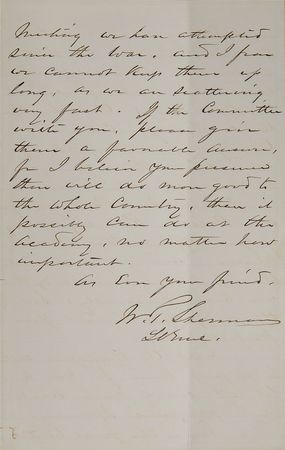 Meeting we have attempted
since the war, and I fear
we cannot keep them up
long, as we are scattering
very fast. If the Committee
write you, please give
them a favorable answer,
for I believe your presence
there will do more good to
the whole Country, than it
possibly can do at the
Academy, no matter how
important.
As Ever your friend,
W. T. Sherman